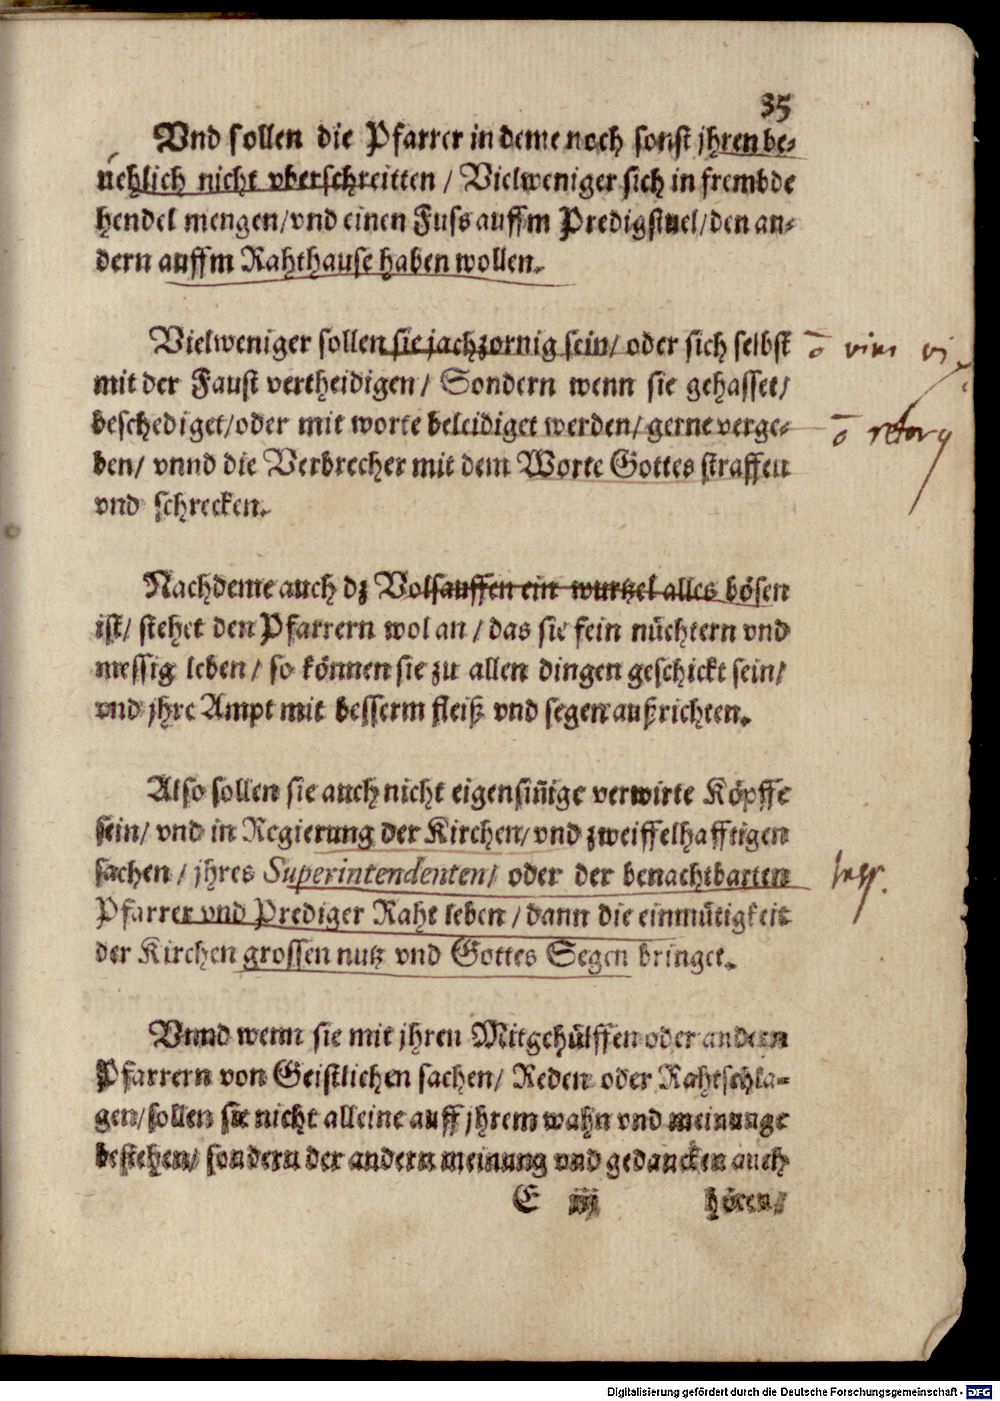 35
Vnd sollen die Pfarrer in deme noch sonst jhren be-
uehlich nicht vberschreitten / Vielweniger sich in frembde
hendel mengen/vnd einen Fuss auffm Predigstuel/den an-
dern auffm Rahthause haben wollen.
Vielweniger sollen sie jachzornig sein/ oder sich selbst
mit der Faust vertheidigen/ Sondern wenn sie gehasset/
beschediget/oder mit worte beleidiget werden/ gerne verge-
ben/ vnnd die Verbrecher mit dem Worte Gottes straffen
vnd schrecken.
Nachdeme auch dz Volsauffen ein wurtzel alles bösen
ist/ stehet den Pfarrern wol an / das sie fein nüchtern vnd
messig leben/ so können sie zu allen dingen geschickt sein/
vnd jhre Ampt mit besserm fleiß vnd segen außrichten.
Also sollen sie auch nicht eigensiñige verwirte Köpffe
sein/ vnd in Regierung der Kirchen/ vnd zweiffelhafftigen
sachen / jhres Superintendenten/ oder der benachtbarten
Pfarrer vnd Prediger Raht leben / dann die einmütigkeit
der Kirchen grossen nutz vnd Gottes Segen bringet.
Vnnd wenn sie mit jhren Mitgehülffen oder andern
Pfarrern von Geistlichen sachen/ Reden oder Rahtschla-
gen/sollen sie nicht alleine auff jhrem wahn vnd meinunge
bestehen/ sondern der andern meinung vnd gedancken auch
E iij hören/
Digitalisierung gefördert durch die Deutsche Forschungsgemeinschaft - DFG